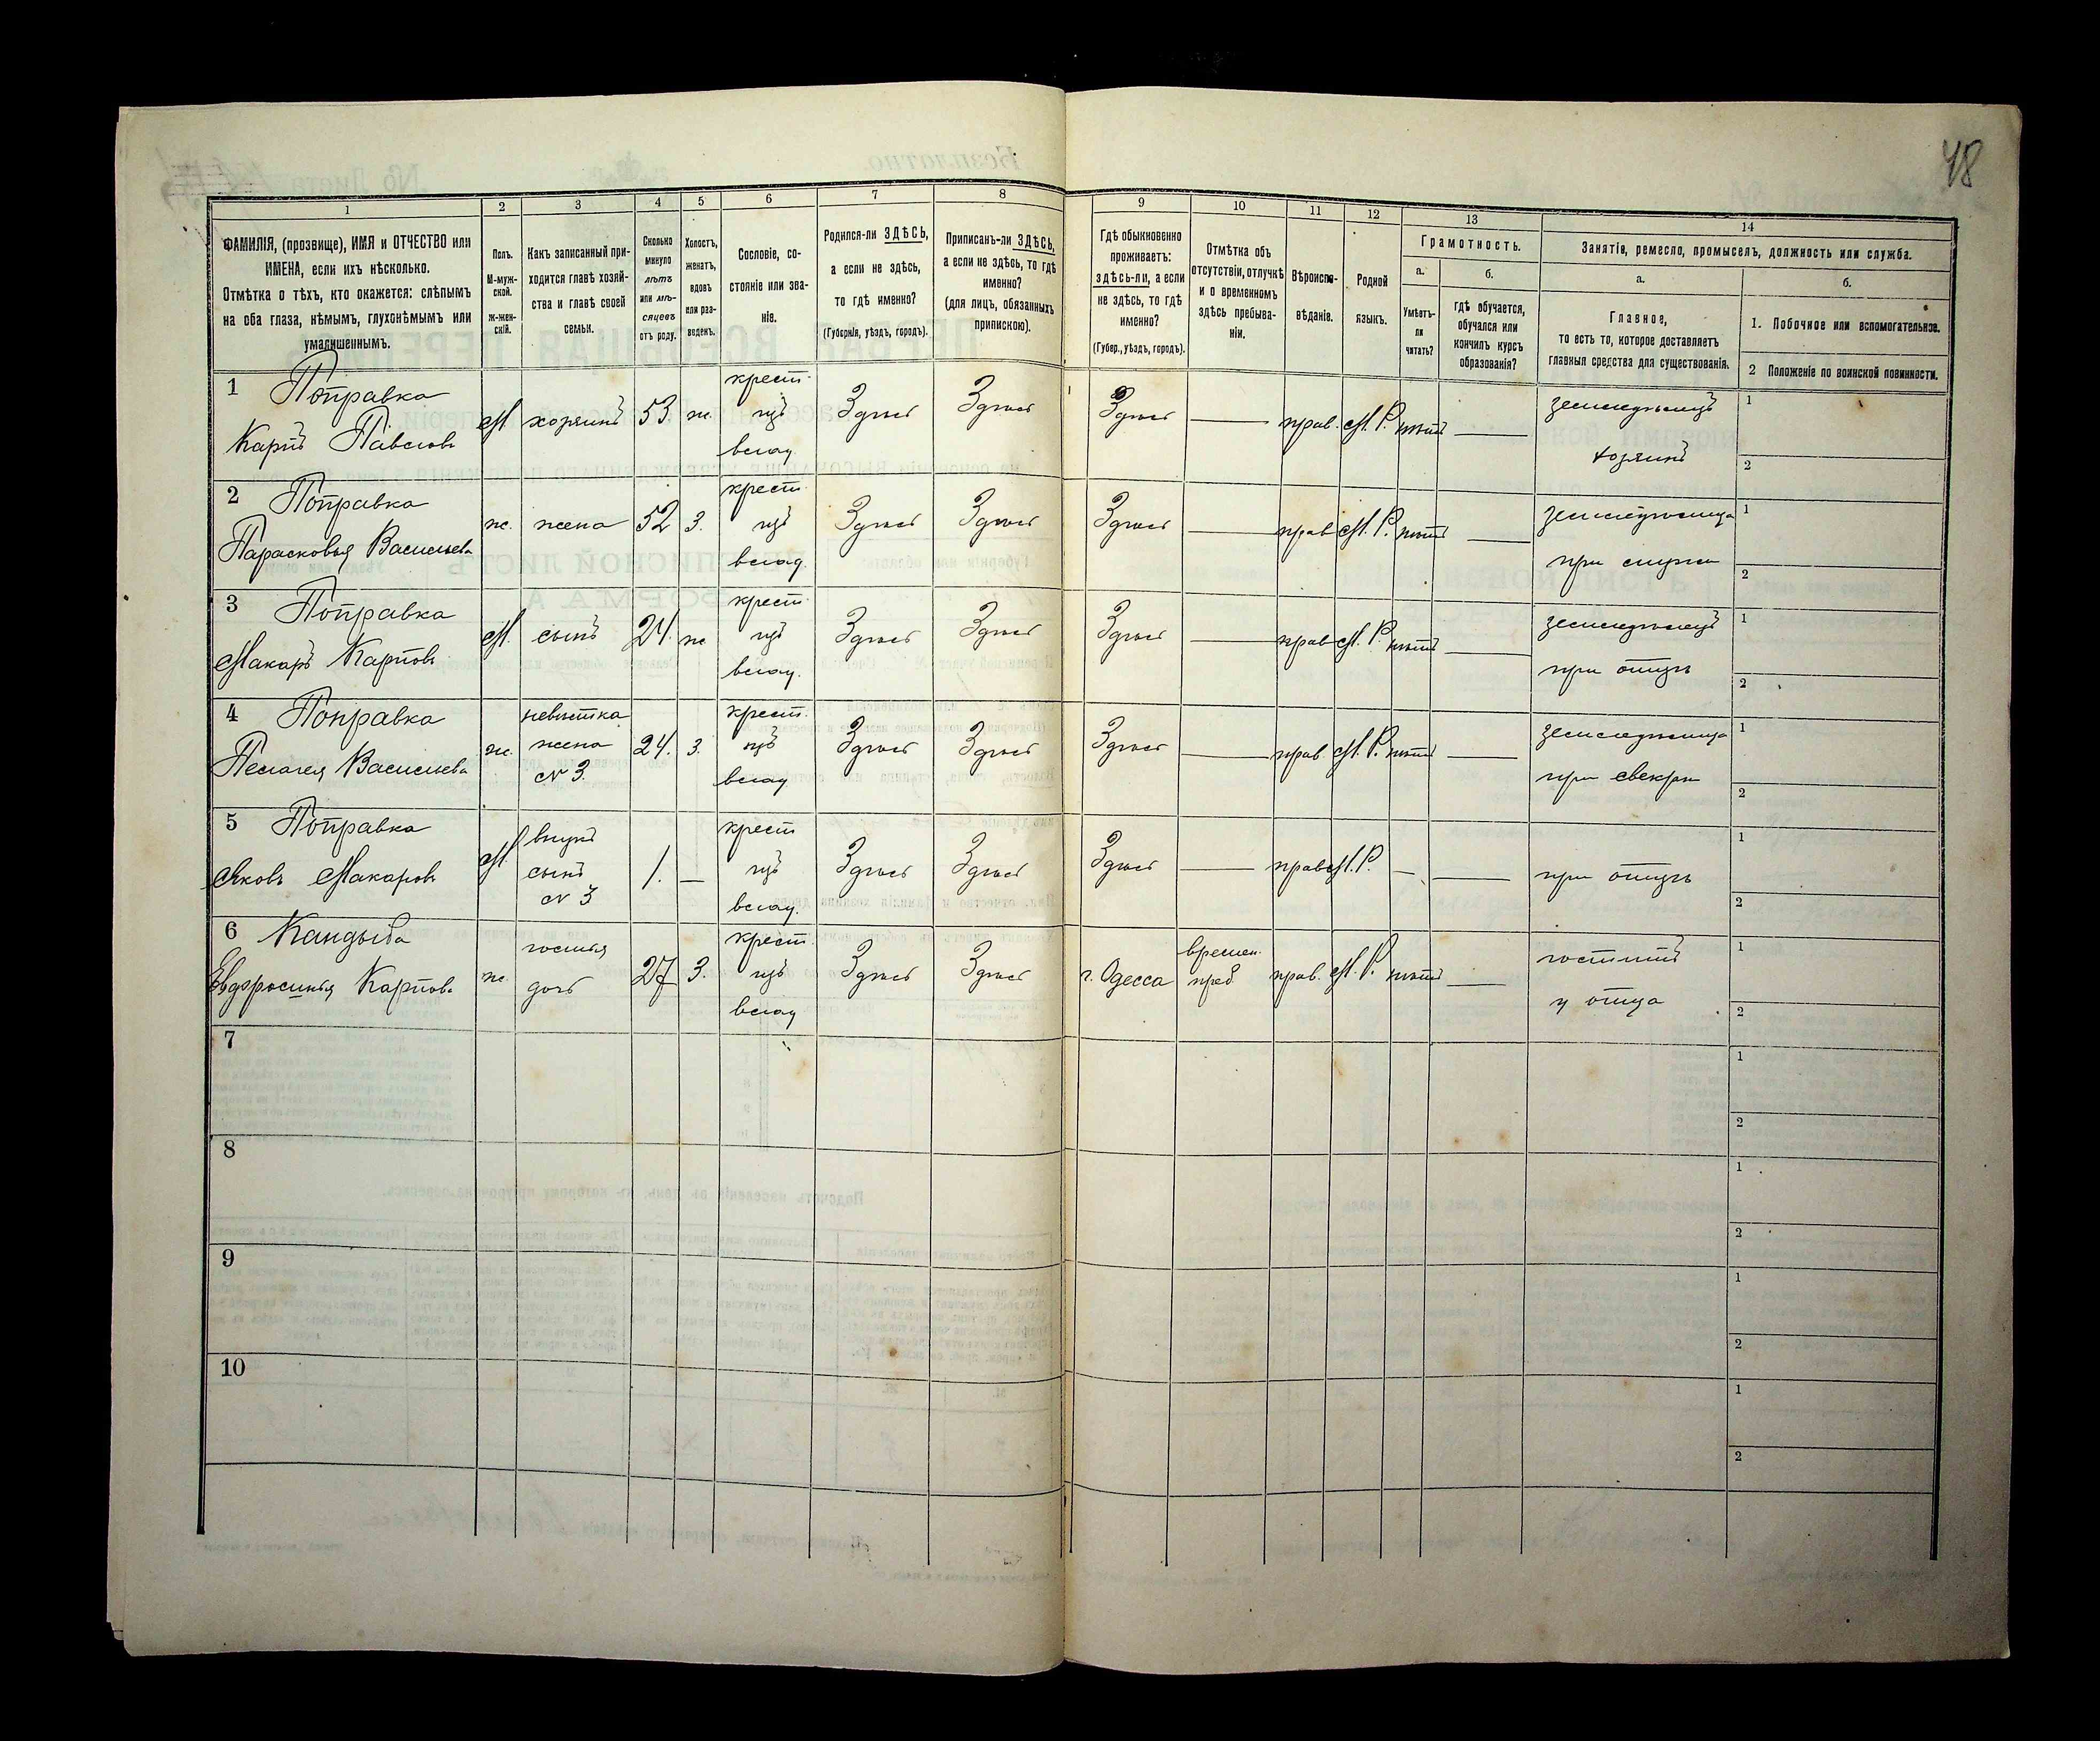 48
1 2 3 4 5 6 7 8 9 10 11 12 13 14
ФАМИЛІЯ, (прозвище), ИМЯ и ОТЧЕСТВО или
ИМЕНА, если ихъ нѣсколько.
Отмѣтка о тѣхъ, кто окажется: слѣпымъ
на оба глаза, нѣмымъ, глухонѣмымъ или
умалишеннымъ.
Полъ.
М-муж-
ской.
Ж-жен-
скій.
Какъ записанный при-
ходится главѣ хозяй-
ства и главѣ своей
семьи.
Сколько
минуло
лѣтъ
или мѣ-
сяцевъ
отъ роду.
Холостъ,
женатъ,
вдовъ
или раз-
веденъ.
Сословіе, со-
стояніе или зва-
ніе.
Родился-ли ЗДѢСЬ,
а если не здѣсь,
то гдѣ именно?
(Губернія, уѣздъ, городъ).
Приписанъ-ли ЗДѢСЬ,
а если не здѣсь, то гдѣ
именно?
(для лицъ, обязанныхъ
припискою).
Гдѣ обыкновенно
проживаетъ:
здѣсь-ли, а если
не здѣсь, то гдѣ
именно?
(Губер., уѣздъ, городъ).
Отмѣтка объ
отсутствіи, отлучкѣ
и о временномъ
здѣсь пребыва-
ніи.
Вѣроиспо-
вѣданіе.
Родной
языкъ.
Грамотность.
а.
Умѣетъ-
ли
читать?
б.
гдѣ обучается,
обучался или
кончилъ курсъ
образованія?
Занятіе, ремесло, промыселъ, должность или служба.
а.
Главное,
то есть то, которое доставляетъ
главныя средства для существованія.
б.
1. Побочное или вспомогательное.
2 Положеніе по воинской повинности.
1 Поправка
Карпъ Павловъ
М. хозяинъ 53 ж.
крест.
изъ
влад.
Здѣсь Здѣсь Здѣсь — прав. М. Р. нѣтъ —
земледѣлецъ
хозяинъ
1
2
2 Поправка
Парасковья Васильева
ж. жена 52 З.
крест.
изъ
влад.
Здѣсь Здѣсь Здѣсь — прав М. Р. нѣтъ —
земледѣлица
при мужи
1
2
3 Поправка
Макаръ Карповъ
М. сынъ 24. ж
крест.
изъ
влад.
Здѣсь Здѣсь Здѣсь — прав М. Р. нѣтъ —
земледѣлецъ
при отцѣ
1
2
4 Поправка
Пелагея Васильева
ж.
невѣстка
жена
№ 3.
24. З.
крест.
изъ
влад
Здѣсь Здѣсь Здѣсь — прав. М. Р. нѣтъ —
земледѣлица
при свекрѣ
1
2
5 Поправка
Яковъ Макаровъ
М.
внукъ
сынъ
№ 3
1. —
крест
изъ
влад.
Здѣсь Здѣсь Здѣсь — прав М. Р. — —
при отцѣ
1
2
6 Кандыба
Евдфросинья Карпова
ж.
гостья
дочь
27 З.
крест.
изъ
влад
Здѣсь Здѣсь г. Одесса
времен.
преб.
прав. М. Р. нѣтъ —
гоститъ
у отца
1
2
7
1
2
8
1
2
9
1
2
10
1
2